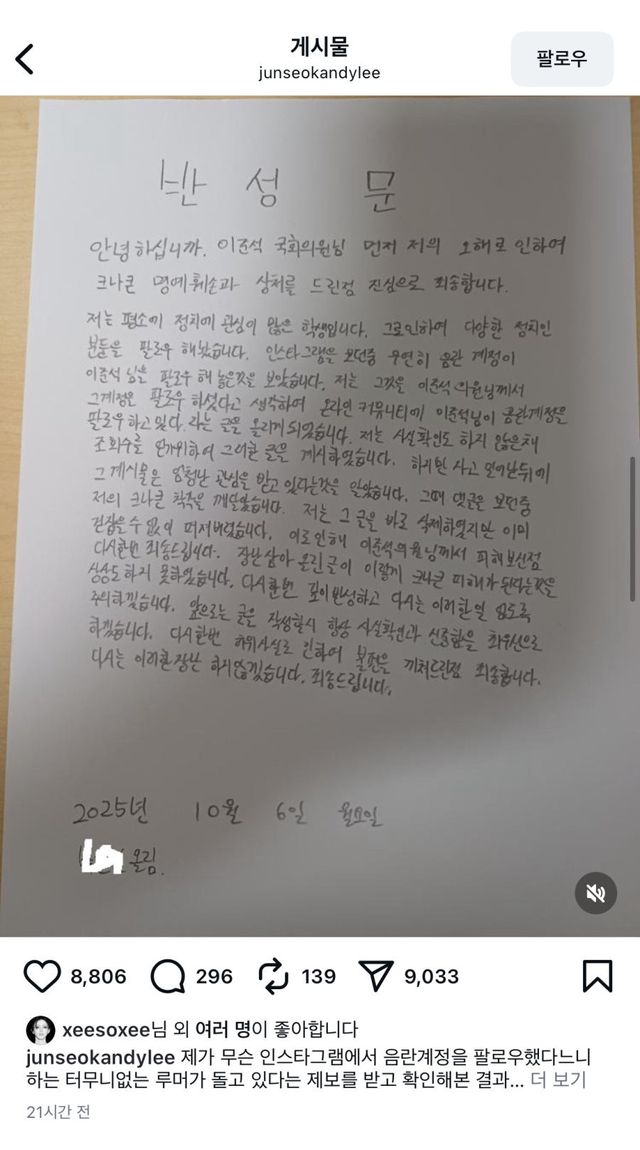 게시물
junseokandylee
팔로우
반 성 문
안녕하십니까. 이준석 국회의원님 먼저 저의 오해로 인하여
크나큰 명예훼손과 상처를 드린점 진심으로 죄송합니다.
저는 평소에 정치에 관심이 많은 학생입니다. 그로인하여 다양한 정치인
분들을 팔로우 해놨습니다. 인스타그램을 보던중 우연히 음란 계정이
이준석 님을 팔로우 해 놓은것을 보았습니다. 저는 그것을 이준석 의원님께서
그계정을 팔로우 하셨다고 생각하여 온라인 커뮤니티에 이준석님이 음란계정을
팔로우 하고있다. 라는 글을 올리게 되었습니다. 저는 사실확인도 하지 않은채
조회수를 위하여 그러한 글을 게시하였습니다. 하지만 자고 일어난뒤에
그 게시물은 엄청난 관심을 받고 있다는것을 알았습니다. 그때 댓글을 보던중
저의 크나큰 착각을 깨달았습니다. 저는 그 글을 바로 삭제하였지만 이미
걷잡을 수 없이 퍼져버렸습니다. 이로 인해 이준석의원님께서 피해보신점
다시한번 죄송드립니다. 장난삼아 올린글이 이렇게 크나큰 피해가 된다는것을
상상도 하지 못하였습니다. 다시한번 깊이 반성하고 다시는 이러한일 없도록
주의하겠습니다. 앞으로는 글을 작성할시 항상 사실확인과 신중함을 최우선으로
하겠습니다. 다시한번 허위사실로 인하여 불편을 끼쳐드린점 죄송합니다.
다시는 이러한 장난 하지않겠습니다. 죄송드립니다.
2025년 10월 6일 월요일
올림.
8,806 296 139 9,033
xeesoxee님 외 여러 명이 좋아합니다
junseokandylee 제가 무슨 인스타그램에서 음란계정을 팔로우했다느니
하는 터무니없는 루머가 돌고 있다는 제보를 받고 확인해본 결과... 더 보기
21시간 전